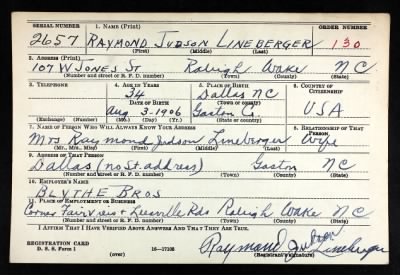 SERIAL NUMBER 1. NAME (Print) ORDER NUMBER
2657 RAYMOND JUDSON LINEBERGER 130
(First) (Middle) (Last)
2. ADDRESS (Print)
107 W JONES ST Raleigh Wake NC
(Number and street or R. F. D. number) (Town) (County) (State)
3. TELEPHONE 4. AGE IN YEARS 5. PLACE OF BIRTH 6. COUNTRY OF CITIZENSHIP
34 Dallas NC
DATE OF BIRTH (Town or county)
Aug 3-1906 Gaston Co. USA
(Exchange) (Number) (Mo.) (Day) (Yr.) (State or country)
7. NAME OF PERSON WHO WILL ALWAYS KNOW YOUR ADDRESS 8. RELATIONSHIP OF THAT PERSON
Mrs Raymond Judson Lineberger Wife
(Mr., Mrs., Miss) (First) (Middle) (Last)
9. ADDRESS OF THAT PERSON
Dallas (no St. address) Gaston NC
(Number and street or R. F. D. number) (Town) (County) (State)
10. EMPLOYER'S NAME
BLYTHE BROS
11. PLACE OF EMPLOYMENT OR BUSINESS
Corner Fairview & Leesville Rds Raleigh Wake NC
(Number and street or R. F. D. number) (Town) (County) (State)
I AFFIRM THAT I HAVE VERIFIED ABOVE ANSWERS AND THAT THEY ARE TRUE.
REGISTRATION CARD
D. S. S. Form 1 16-17105 Raymond Judson Lineberger
(Registrant's signature)